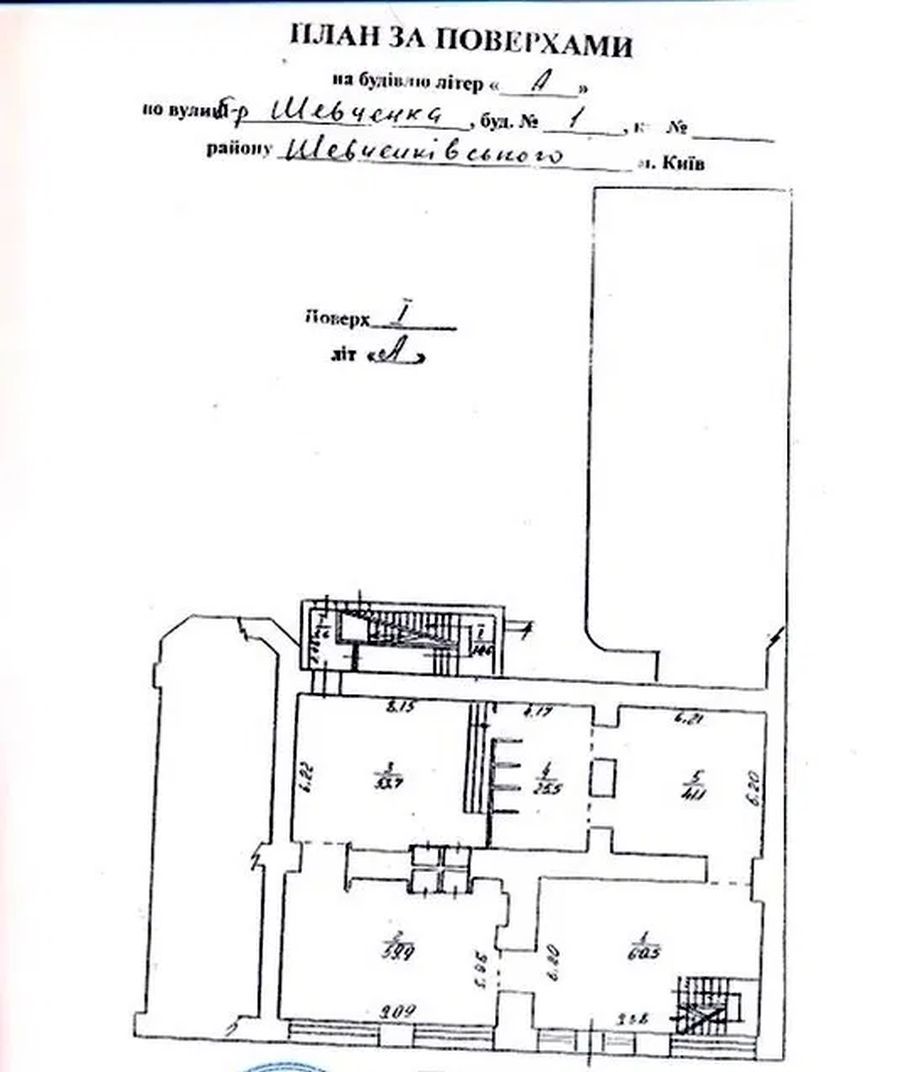 ПЛАН ЗА ПОВЕРХАМИ
на будівлю літер « А »
по вулиці б-р Шевченка, буд. № 1, к №
району Шевченківського м. Київ
Поверх I
літ «А»
I
8.15
4.17
6.21
6.22
3
53.7
4
25.5
5
41.1
6.20
2
53.9
5.95
6.20
1
60.5
9.09
9.38